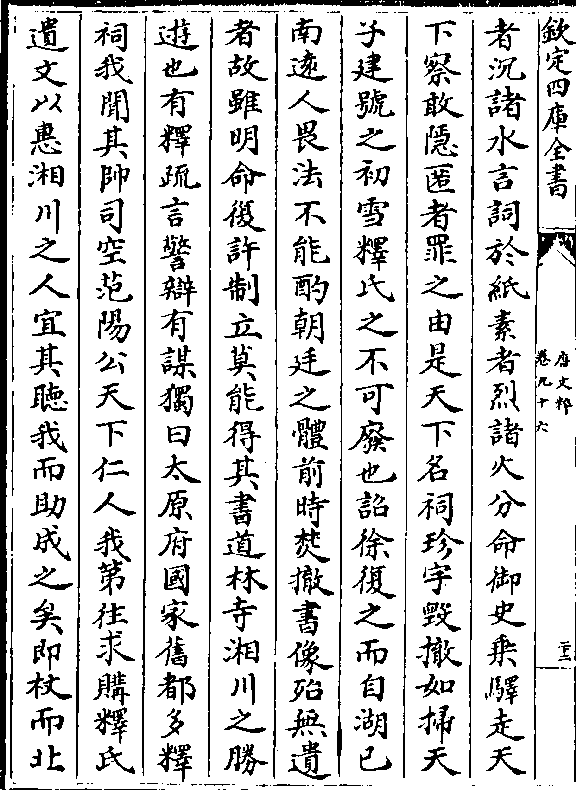 欽定四庫全書
唐文粹
卷九十六
二十三
者沉諸水言詞於紙素者烈諸火分命御史乗驛走天
下察敢隱匿者罪之由是天下名祠珍宇毀撤如掃天
子建號之初雪釋氏之不可廢也詔徐復之而自湖已
南逺人畏法不能酌朝廷之體前時焚撤書像殆無遺
者故雖明命復許制立莫能得其書道林寺湘川之勝
遊也有釋疏言警辯有謀獨曰太原府國家舊都多釋
祠我聞其帥司空范陽公天下仁人我第往求購釋氏
遺文以惠湘川之人宜其聴我而助成之矣即杖而北